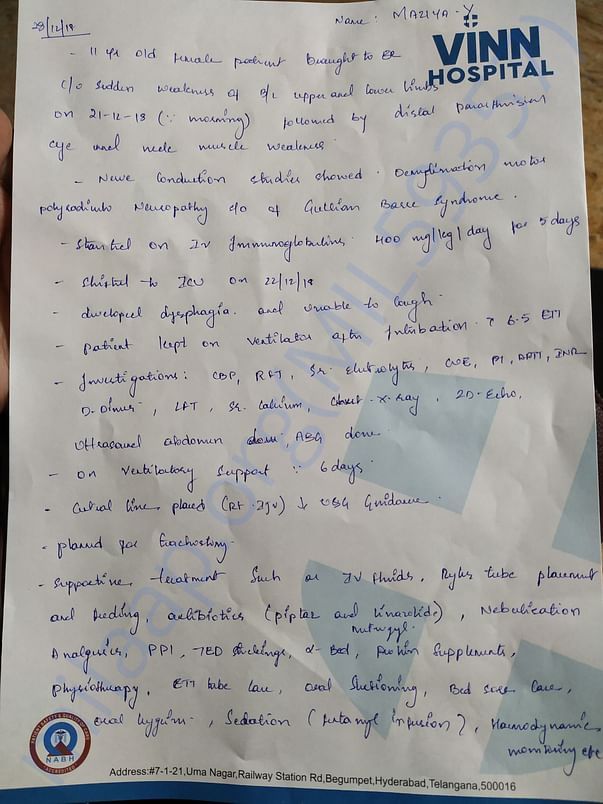 28/12/18
Name : MAZIYA - Y
VINN
HOSPITAL
- 11 yr old Female patient brought to ER
c/o Sudden weakness of B/L upper and lower limbs
on 21-12-18 (∵ morning) followed by distal paraesthesia
eye and neck muscle weakness
- Nerve Conduction studies showed . Demylination motor
Neuropathy c/o of Gullian Barre Syndrome .
- Started on IV Immunoglobulins 400 mg/kg/day for 5 days
- Shifted to ICU on 22/12/18
- developed dysphagia. and unable to cough .
- patient kept on ventilator after Intubation . 6.5 ETT
- Investigations : CBP, RFT, Sr. Eletrolytes, CUE, PT, APTT, INR
D-Dimer , LFT , Sr. Calcium, chest X-ray , 2D-Echo,
Ultrasound abdomen done , ABG done
- on Ventilatory Support ∵ 6 days
- Central line placed (Rt. IJV) ↓ USG Guidance .
- planned for tracheostomy .
- Supportive treatment Such as IV fluids , Ryles tube placement
and feeding , antibiotics (piptaz and linazolid) , Nebulication
Analgesics , PPI , TED stockings , α-Bed , protein Supplements ,
physiotherapy , ETT tube care , oral Suctioning , Bed sore care ,
oral hygiene , Sedation (fentanyl infusion) , Haemodynamic
monitoring etc
milaap.org(MIL59357
NABH
ACCREDITED
Address:#7-1-21,Uma Nagar,Railway Station Rd,Begumpet,Hyderabad,Telangana,500016